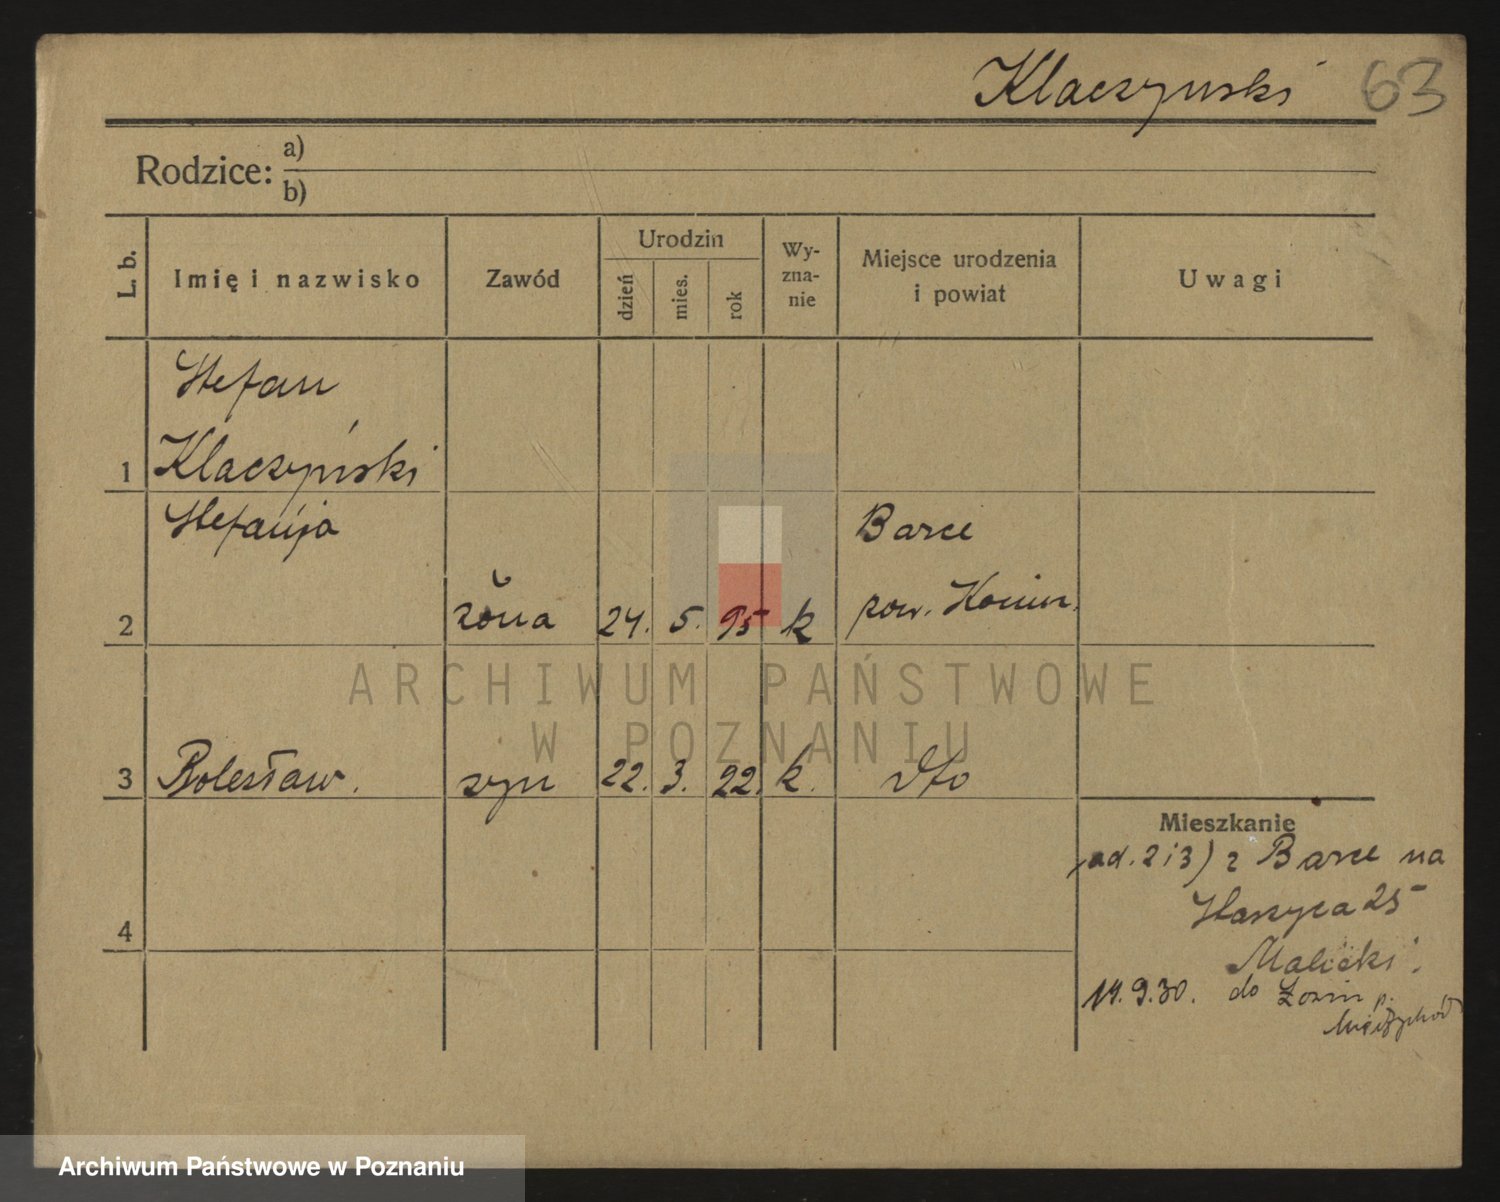 Klaczynski 63
Rodzice: a)
b)
L. b.
Imię i nazwisko
Zawód
Urodzin
dzień
mies.
rok
Wy-
zna-
nie
Miejsce urodzenia
i powiat
Uwagi
Stefan
1 Klaczyński
Stefanja Barce
2 żona 24. 5. 95 k pow. Konin.
ARCHIWUM PAŃSTWOWE
W POZNANIU
3 Bolesław. syn 22. 3. 22. k. dto
Mieszkanie
ad. 2 i 3) z Barce na
25
4
Malicki.
19.9.30. do p.
Międzychód
Archiwum Państwowe w Poznaniu